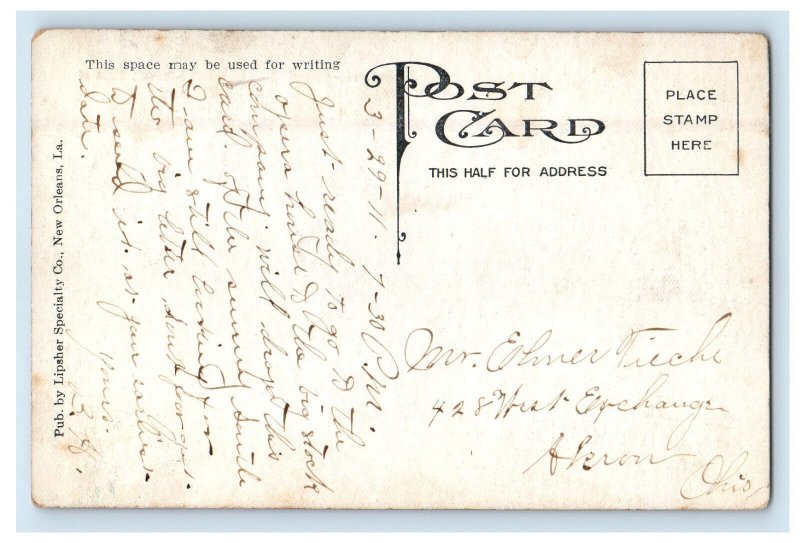 This space may be used for writing
POST CARD
THIS HALF FOR ADDRESS
PLACE
STAMP
HERE
Pub. by Lipsher Specialty Co., New Orleans, La.
3-29-11. 7-30 P.M.
Just ready to go to the
opera house & the big stock
company. will drop this
card of the sunny smile
I am still looking for
the big letter dont forget
to send it at your earliest
date.
yours.
Mr. Elmer Tieche
428 West Exchange
Akron
Ohio